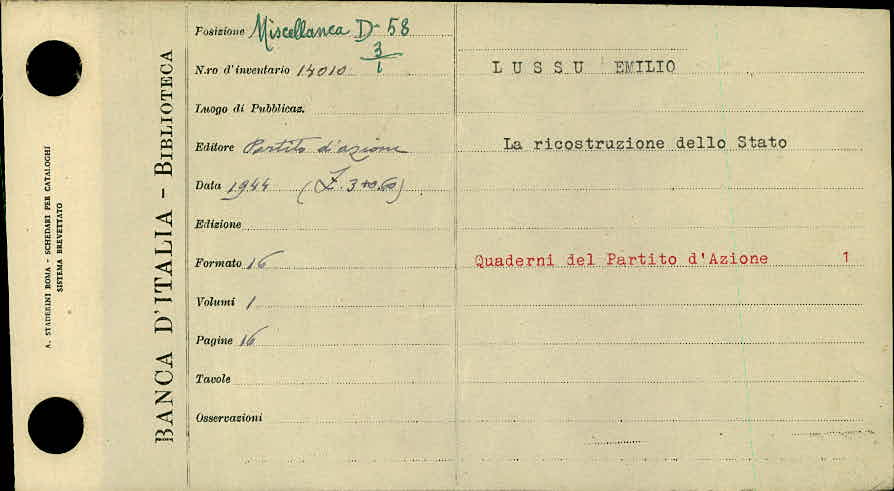 A. STADERINI ROMA - SCHEDARI PER CATALOGHI
SISTEMA BREVETTATO
BANCA D'ITALIA - BIBLIOTECA
Posizione Miscellanea D 58
3
1
N.ro d'inventario 14010
Luogo di Pubblicaz.
Editore Partito d'azione
Data 1944 (£. 3+0.60)
Edizione
Formato 16
Volumi 1
Pagine 16
Tavole
Osservazioni
LUSSU EMILIO
La ricostruzione dello Stato
Quaderni del Partito d'Azione 1